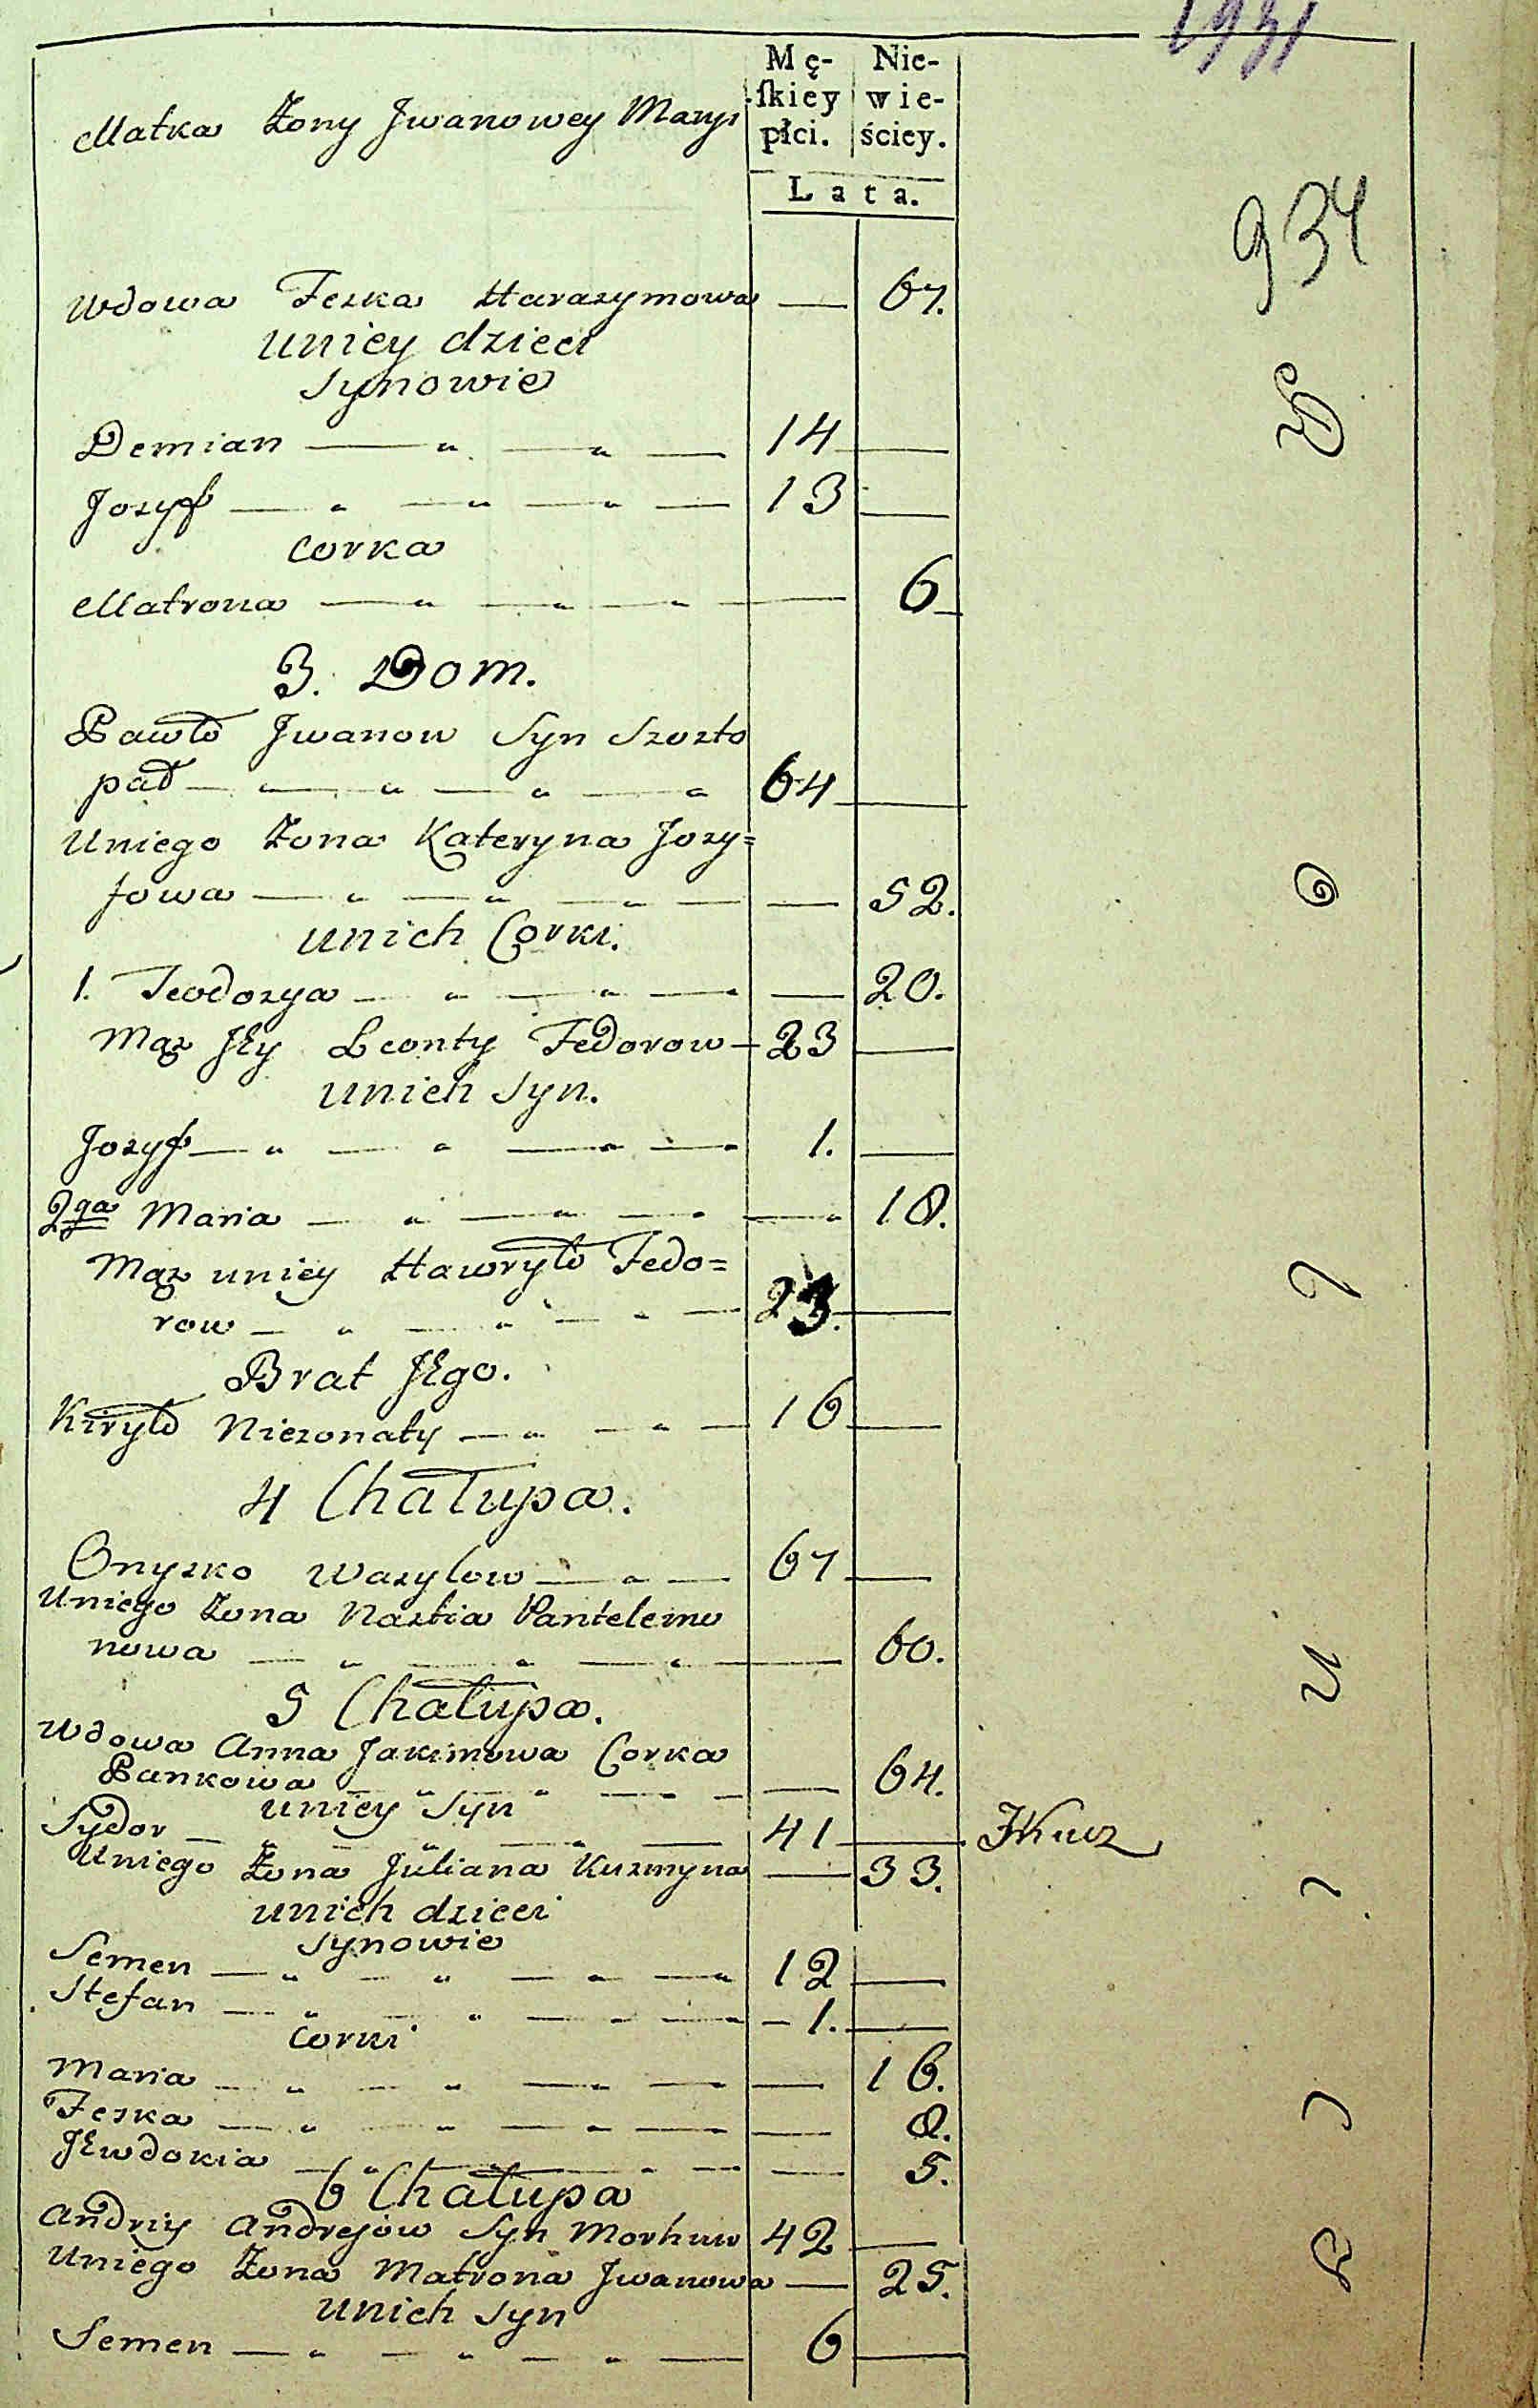 1931
Mę- Nie-
ſkiey wie-
płci. ściey.
Matka Żony Jwanowey Maryi
Lata.
934
Wdowa Feska Harasymowa — 67.
Uniey dzieci
Synowie
Demian 14 —
Josyf 13 —
Corka
Matrona — 6
3. Dom.
Pawło Jwanow Syn Szosto
pał 64 —
Uniego Żona Kateryna Josy=
fowa — 52.
Unich Corki.
1. Teodosya — 20.
Mąz JEy Leonty Fedorow 23 —
Unich Syn.
Josyf 1. —
2ga Maria — 18.
Mąz uniey Hawryło Fedo=
row 23. —
Brat JEgo.
Kiryło Niezonaty 16 —
4 Chałupa.
Onysko Wasylow 67 —
Uniego Żona Nastia Pantelemo
nowa — 60.
5 Chałupa.
Wdowa Anna Jakimowa Corka
Pankowa — 64.
Uniey Syn
Sydor 41 —
Uniego Żona Juliana Kuzmyna — 33.
Unich dzieci
Synowie
Semen 12 —
Stefan 1. —
Corki
Maria — 16.
Feska — 8.
JEwdokia — 5.
6 Chałupa
Andriy Andrejow Syn Morhun 42 —
Uniego Żona Matrona Jwanowa — 25.
Unich Syn
Semen 6 —